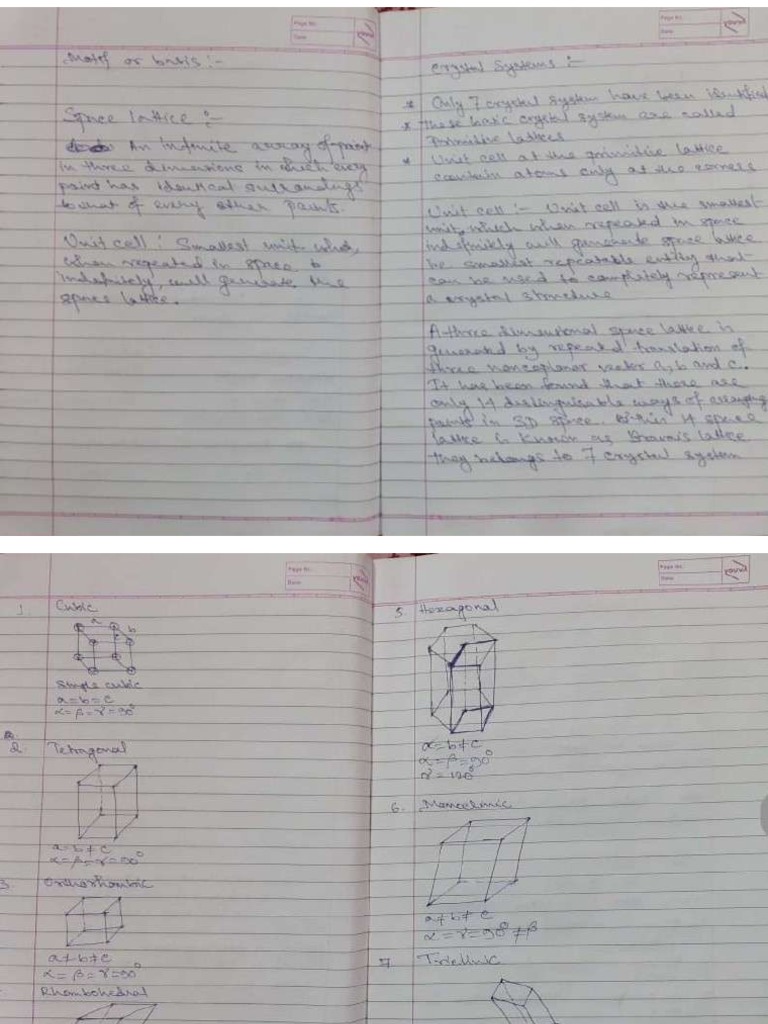 Page No.
Date
Motif or basis :-
Space lattice :-
An infinite array of point
in three dimensions in which every
point has identical surroundings
to that of every other points.
Unit cell : Smallest unit
when repeated in space
indefinitely, will generate the
space lattice.
Page No.
Date
Crystal Systems :-
* Only 7 crystal system have been identified
* These basic crystal system are called
primitive lattices
* Unit cell at the primitive lattice
contain atoms only at the corners
Unit cell :- Unit cell is the smallest
unit, which when repeated in space
indefinitely will generate space lattice
smallest repeatable entity that
can be used to completely represent
a crystal structure
A three dimensional space lattice is
generated by repeated translation of
three noncoplanar vector a, b and c.
It has been found that there are
only 14 distinguisable ways of arranging
points in 3D space. 14 space
lattice is known as Bravais lattice
they belongs to 7 crystal system
Page No.
Date
1. Cubic
a
b
Simple cubic
a = b = c
α = β = γ = 90°
2. Tetragonal
a = b ≠ c
α = β = γ = 90°
3. Orthorhombic
a ≠ b ≠ c
α = β = γ = 90°
Rhombohedral
Page No.
Date
5. Hexagonal
a = b ≠ c
α = β = 90°
γ = 120°
6. Monoclinic
a ≠ b ≠ c
α = γ = 90° ≠ β
7. Triclinic